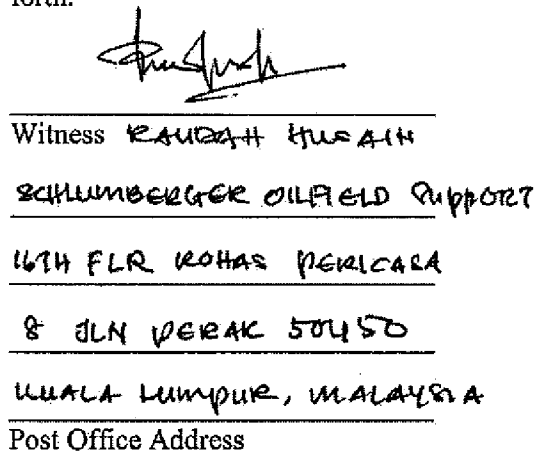 forth.
Witness RAUDAH HUSAIN
SCHLUMBERGER OILFIELD SUPPORT
16TH FLR ROHAS PERKASA
8 JLN PERAK 50450
KUALA LUMPUR, MALAYSIA
Post Office Address